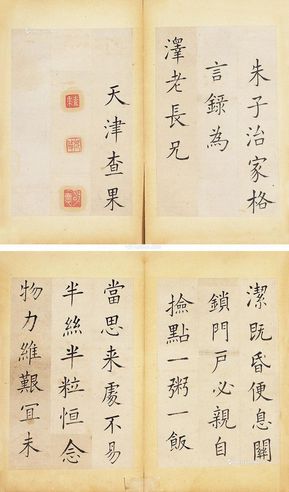 朱子治家格
言錄為
澤老長兄
天津查果
潔既昏便息關
鎖門戶必親自
撿點一粥一飯
當思来處不易
半絲半粒恒念
物力維艱宜未